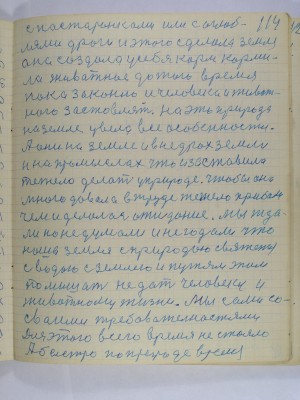 114
с постаринками или с огоб-
лями дроги и этого сделала земля
она создала у себя корм корми-
ла животные до того время
пока законно и человека и живот-
ного заставлят. На это природа
на земле увела все особенности.
А они на земле и внедрах земли
и на промыслах что и заставила
тяжело делать у природе. Чтобы она
много давала в труде тяжело
чем и делалась ожидание. Мы жда-
ли но не думали и не гадали что
наша земля с природою связаны
с водою с землею и путям этим
помешат не дат человеку и
животному жизни. Мы сами со-
своими требовательностями
Для этого всего время не стояло
А быстро по природе время